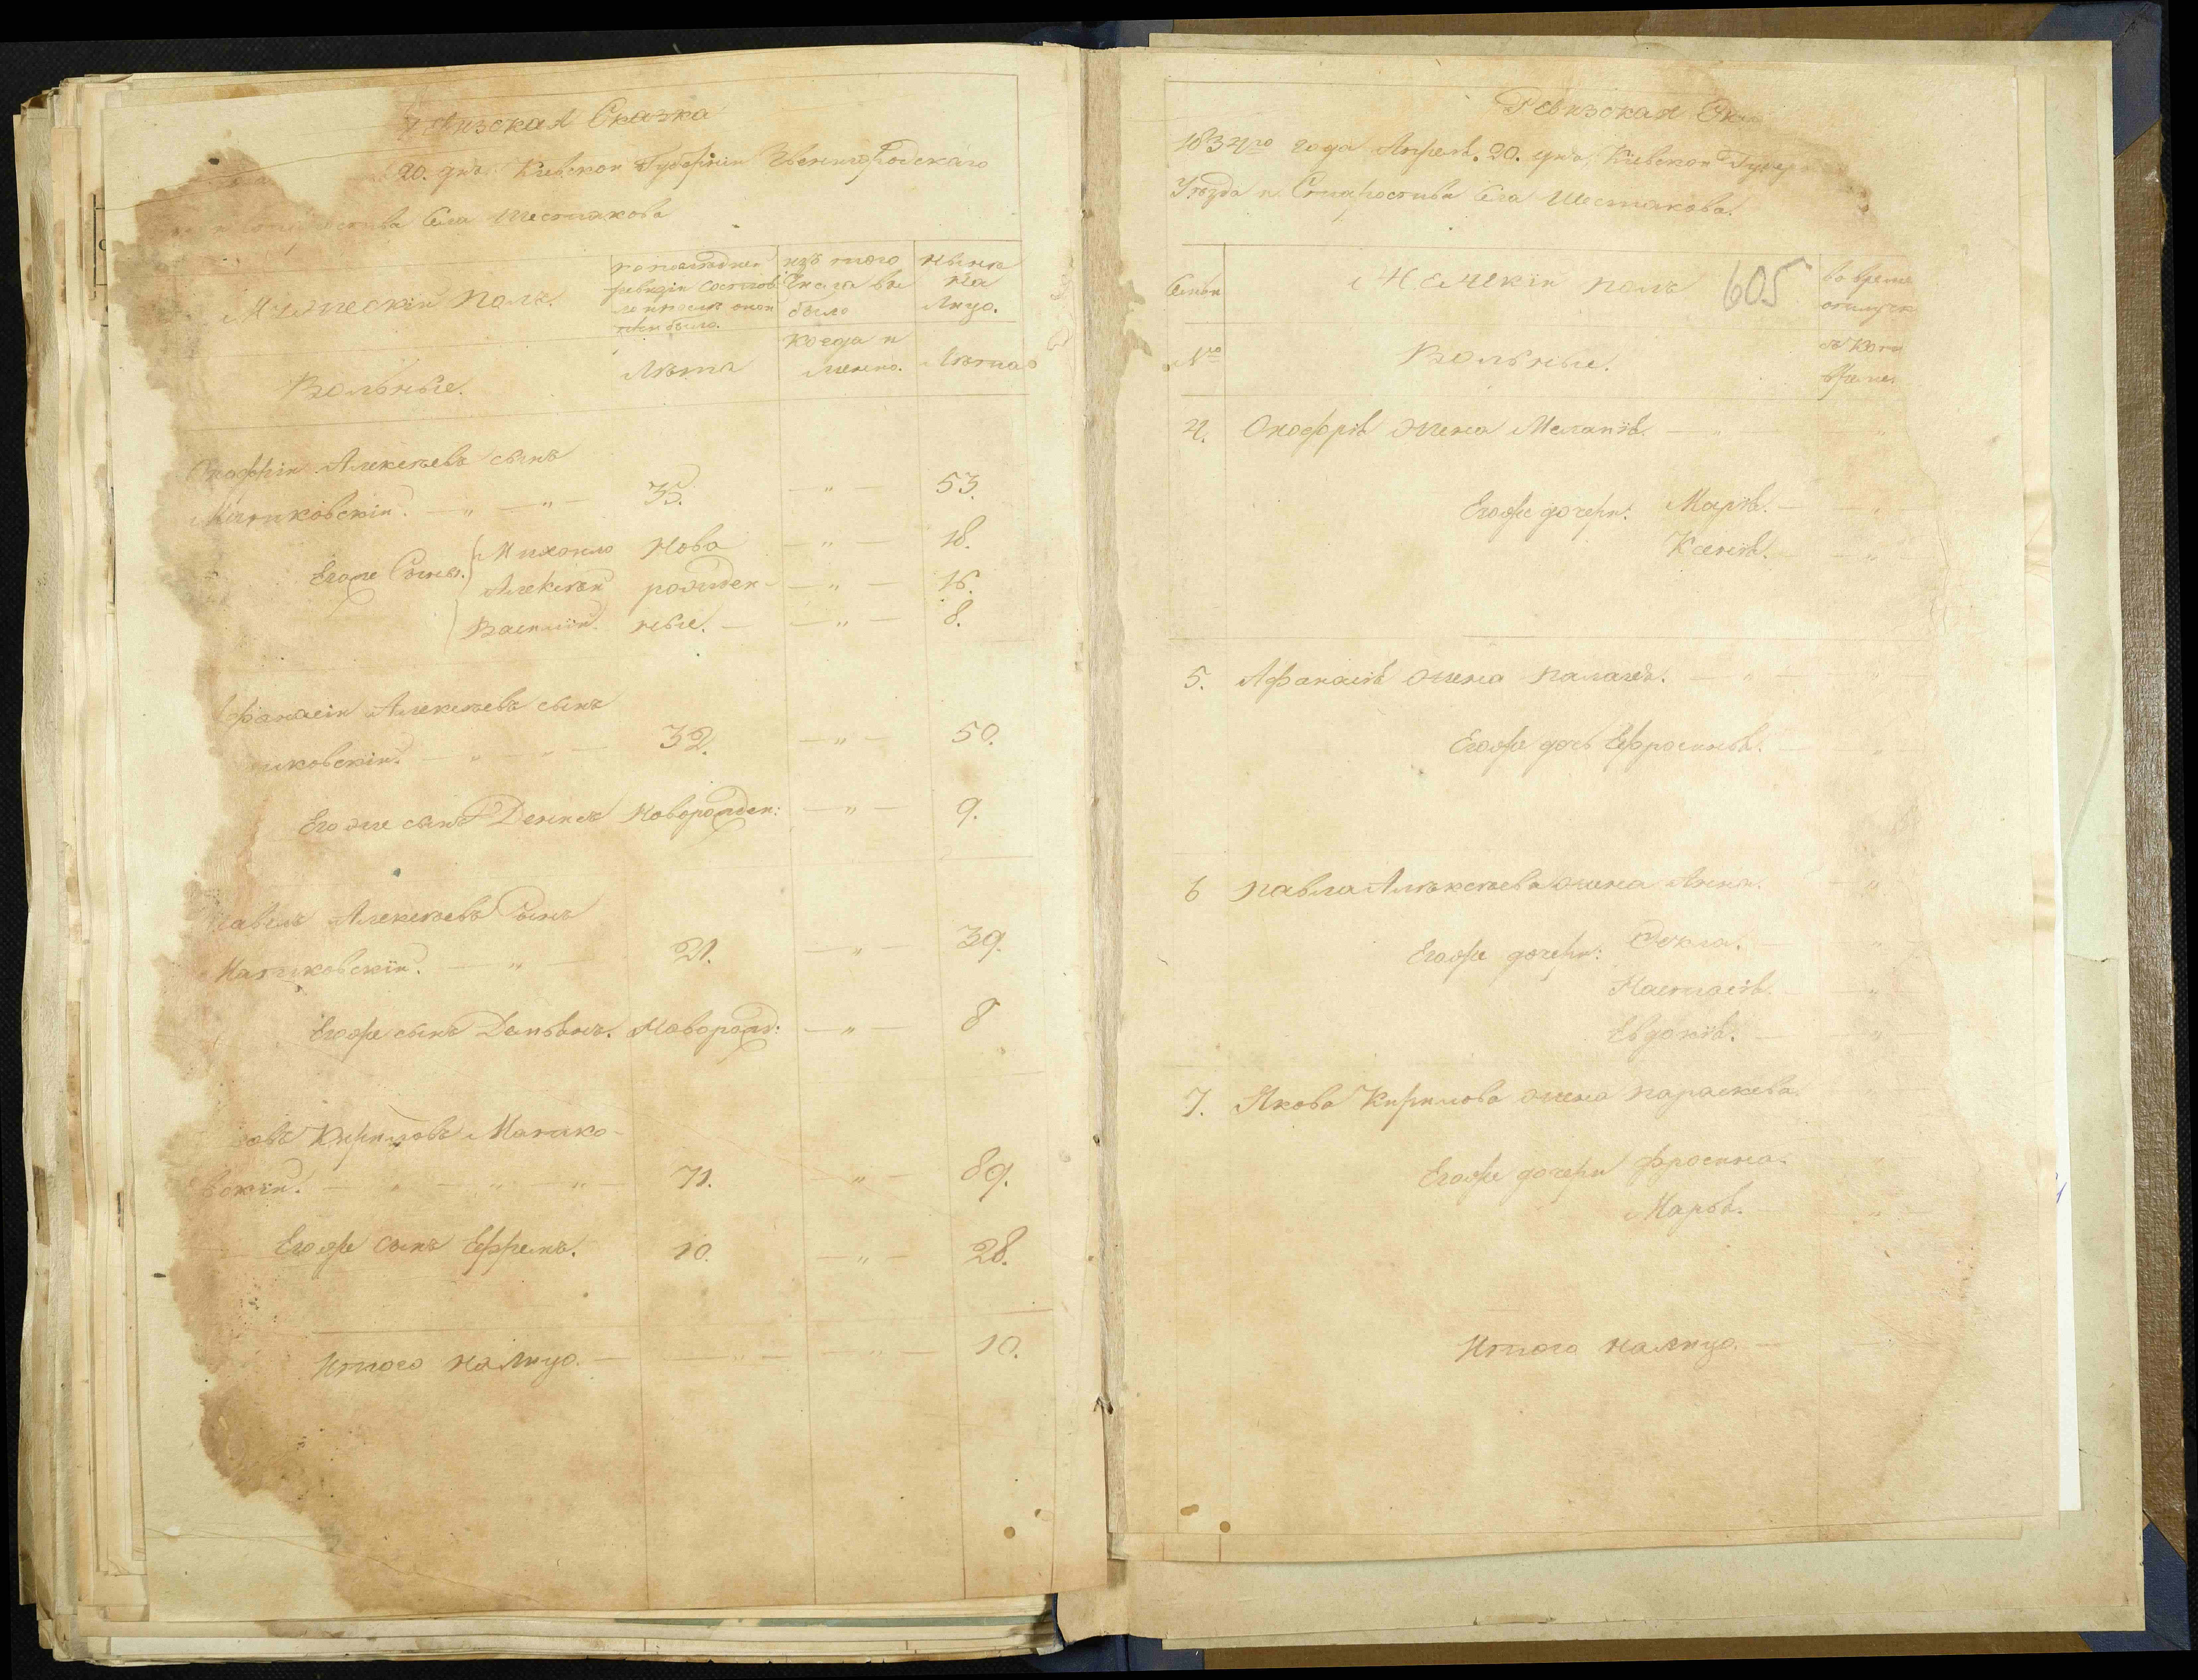 Ревизская Сказка
20. дня Киевской Губернии Звенигородскаго
Староства Села Шестакова
Мужескій полъ.
по последней
ревизіи состояло
было.
изъ того
числа вы
было
нынѣ
на
Лицо.
Вольные.
Лѣта
Когда и
Лѣта
Онофрій Алексѣевъ сынъ
Матиковскій. 35. — „ — 53.
Егоже Сыны. Михайло Ново — „ — 18.
Алексѣй рожден — „ — 16.
Василій. ные. — „ — 8.
Афанасій Алексѣевъ сынъ
иковскій. 32. — „ — 50.
Его же сынъ Денисъ Новорожден: — „ — 9.
Павелъ Алексѣевъ Сынъ
Матиковскій. — „ — 21. — „ — 39.
Егоже сынъ Демьянъ. Новорожд: — „ — 8
овъ Кириловъ Матико-
вскій. — „ — „ — „ — 71. — „ — 89.
Егоже сынъ Ефремъ. 10. — „ — 28.
Итого налицо. — — „ — — „ — 10.
Ревизская Ска
1834го года Апреля. 20. дня, Киевской Губер
Уезда и Староства Села Шестакова.
Семьи
Женскій полъ
605
во време
отлучк
№
Вольные.
съ кото
време
4. Онофрія жена Меланія. — „
Егоже дочери: Марія. — „
Ксенія. — „
5. Афанасія жена Палагея. — „ — „
Егоже дочь Ефросинья. — „
6 Павла Алѣксѣева жена Анна. — „
Егоже дочери: Фекла. — „
Настасія. — „
Евдокія. — „
7. Якова Кирилова жена Параскева.
Егоже дочери Фросина. „
Марья. — „
Итого налицо. —